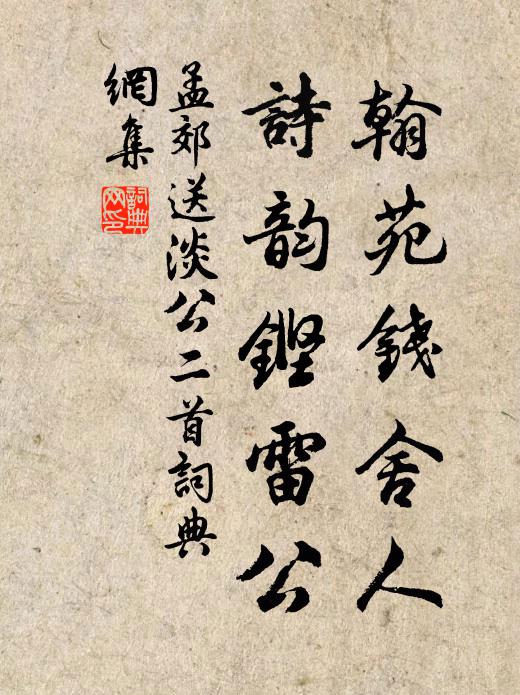 翰苑錢舍人
詩韵鏗雷公
孟郊送淡公二首詞典
網集
詞典网印